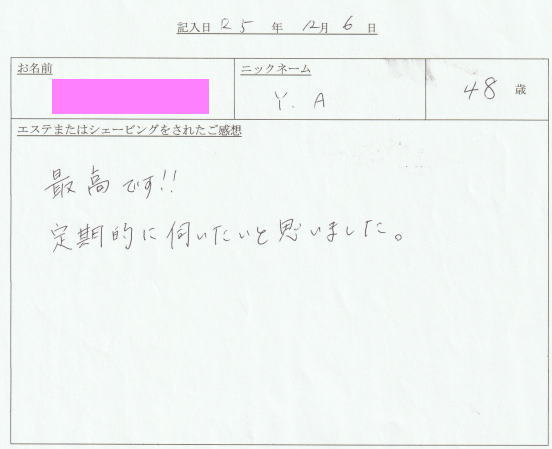 記入日 25 年 12月 6 日
お名前
ニックネーム
Y. A
48 歳
エステまたはシェービングをされたご感想
最高です!!
定期的に伺いたいと思いました。